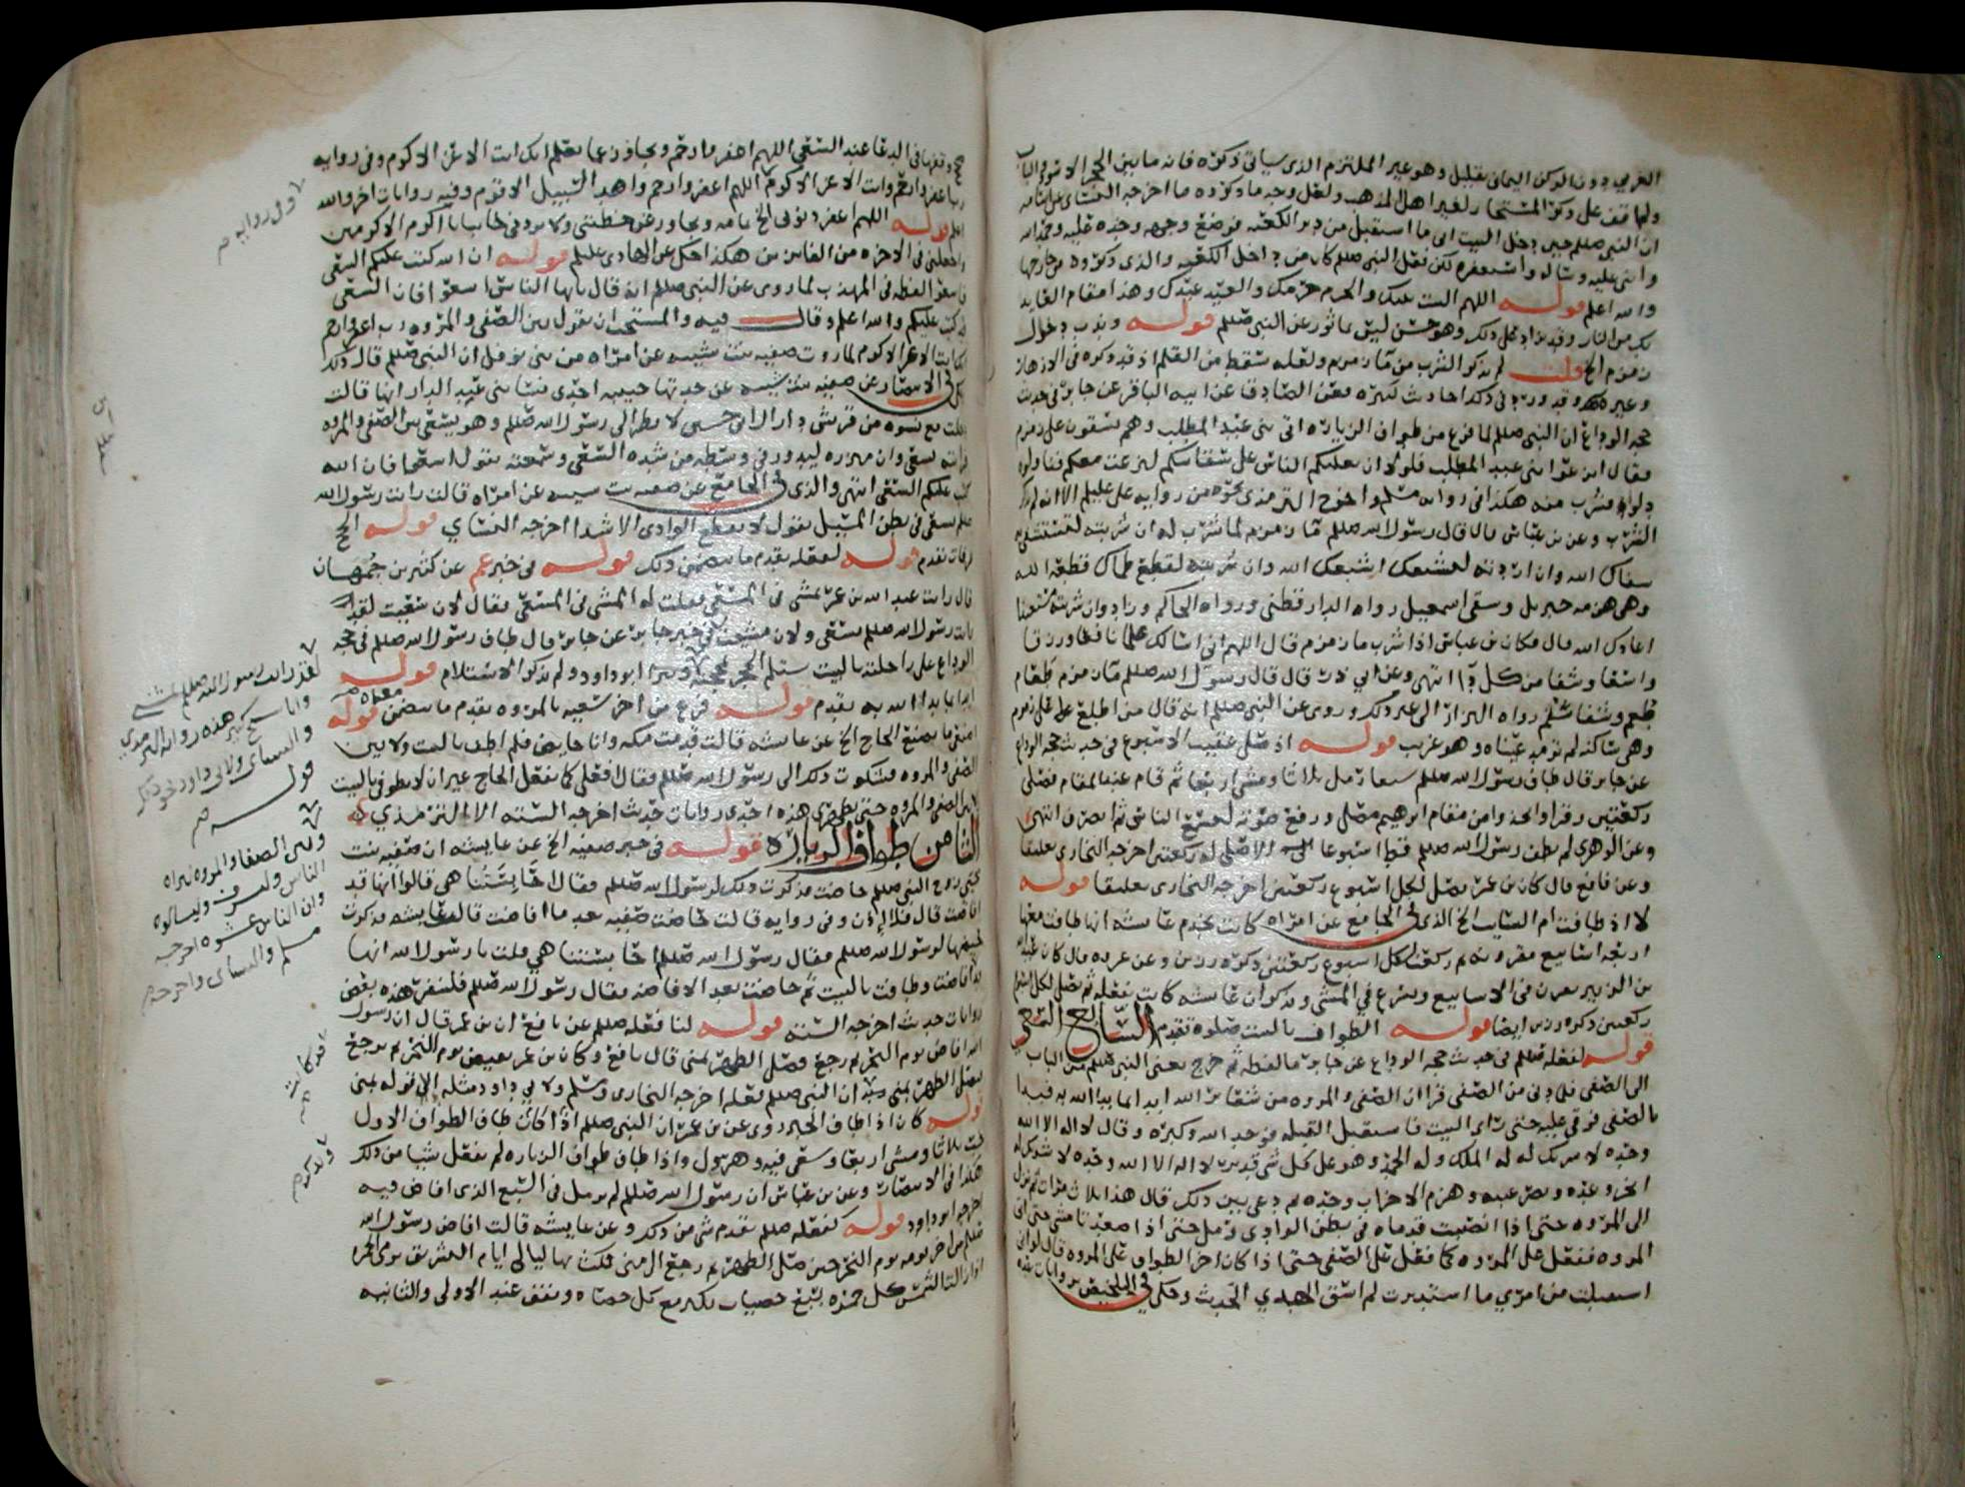 الغربي دون الركن اليماني بقليل وهو غير الملتزم الذي سياتي ذكره فانه ما بين الحجر الاسود والباب
ولم اقف على ذكر المستجار لغير اهل المذهب ولعل وجه ما ذكروه ما اخرجه النسائي عن اسامه
ان النبي صللم حين دخل البيت اتى ما استقبل من دبر الكعبه فوضع وجهه وخده عليه وحمد الله
واثنى عليه وساله واستغفره لكن فعل النبي صللم كان من داخل الكعبه والذي ذكروه من خارجها
والله اعلم قوله اللهم البيت بيتك والحرم حرمك والعبد عبدك وهذا مقام العايذ
بك من النار وقد يزاد على ذلك وهو حسن ليس بماثور عن النبي صللم قوله وندب دخول
زمزم الخ قلت لم يذكر الشرب من ماء زمزم ولعله سقط من القلم اذ قد ذكره في الازهار
وغيره وقد ورد في ذلك احاديث كثيره فعن الصادق عن ابيه الباقر عن جابر في حديث
حجه الوداع ان النبي صللم لما فرغ من طواف الزياره اتى بني عبد المطلب وهم يسقون على زمزم
فقال انزعوا بني عبد المطلب فلولا ان يغلبكم الناس على سقايتكم لنزعت معكم فناولوه
دلوا فشرب منه هكذا في روايه مسلم واخرج الترمذي نحوه من روايه علي عليلم الا انه لم يذكر
الشرب وعن بن عباس قال قال رسول الله صللم ماء زمزم لما شرب له ان شربته لتستشفي به
شفاك الله وان اردته لشبعك اشبعك الله وان شربته لقطع ظماك قطعه الله
وهي هزمه جبريل وسقيا اسمعيل رواه الدارقطني ورواه الحاكم وزاد وان شربته مستعيذا
اعاذك الله قال فكان بن عباس اذا شرب ماء زمزم قال اللهم اني اسالك علما نافعا ورزقا
واسعا وشفا من كل داء انتهى وعن ابي ذر قال قال رسول الله صللم ماء زمزم طعام
طعم وشفا سقم رواه البزار الى غير ذلك وروي عن النبي صللم انه قال من اطلع على زمزم
وهي ساكنه لم ترمد عيناه وهو غريب قوله اذ صلى عقيب الاسبوع في حديث حجه الوداع
عن جابر قال طاف رسول الله صللم سبعا رمل ثلاثا ومشى اربعا ثم قام عند المقام فصلى
ركعتين وقرا واتخذوا من مقام ابرهيم مصلى ورفع صوته ليسمع الناس ثم انصرف انتهى
وعن الزهري لم يطف رسول الله صللم قط اسبوعا الا صلى له ركعتين اخرجه البخاري تعليقا
وعن نافع قال كان بن عمر يصلي لكل اسبوع ركعتين اخرجه البخاري تعليقا قوله
لا اذ طافت ام السايب الخ الذي في الجامع عن امراه كانت تخدم عايشه انها طافت معها
اربعه اسابيع مقرونه ثم ركعت لكل اسبوع ركعتين ذكره رزين وعن عروه قال كان عبد الله
بن الزبير يقرن في الاسابيع ويسرع في المشي ويذكر ان عايشه كانت تفعله ثم تصلي لكل اسبوع
ركعتين ذكره رزين ايضا قوله الطواف بالبيت صلوه تقدم السابع السعي
قوله لفعله صللم في حديث حجه الوداع عن جابر ما لفظه ثم خرج يعني النبي صللم من الباب
الى الصفى فلما دنى من الصفى قرا ان الصفى والمروه من شعائر الله ابدا بما بدا الله به فبدا
بالصفى فرقي عليه حتى راى البيت فاستقبل القبله فوحد الله وكبره وقال لا اله الا الله
وحده لا شريك له له الملك وله الحمد وهو على كل شي قدير لا اله الا الله وحده لا شريك له
انجز وعده ونصر عبده وهزم الاحزاب وحده ثم دعى بين ذلك قال هذا ثلاث مرات ثم نزل
الى المروه حتى اذا انصبت قدماه في بطن الوادي رمل حتى اذا صعدتا مشى حتى اتى
المروه ففعل على المروه كما فعل على الصفى حتى اذا كان اخر الطواف على المروه قال لو اني
استقبلت من امري ما استدبرت لم اسق الهدي الحديث وحكى في التلخيص روايات
في الدعا عند السعي اللهم اغفر وارحم وتجاوز عما تعلم انك انت الاعز الاكرم وفي روايه
رب اغفر وارحم وانت الاعز الاكرم اللهم اغفر وارحم واهد السبيل الاقوم وفيه روايات اخر والله
اعلم قوله اللهم اغفر ذنوبي الخ تمامه وتجاوز عن خطيئتي ولا تردني خائبا يا اكرم الاكرمين
واجعلني في الاخره من الفائزين هكذا حكى عن الهادي عليلم قوله ان الله كتب عليكم السعي
فاسعوا لفظه في المهذب لما روي عن النبي صللم انه قال يا ايها الناس اسعوا فان السعي
قد كتب عليكم والله اعلم وقال فيه والمستحب ان يقول بين الصفى والمروه رب اغفر وارحم
انك انت الاعز الاكرم لما روت صفيه بنت شيبه عن امراه من بني نوفل ان النبي صللم قال ذلك
في الانتصار عن صفيه بنت شيبه عن جدتها حبيبه احدى نسا بني عبد الدار انها قالت
دخلت مع نسوه من قريش دار ال ابي حسين لانظر الى رسول الله صللم وهو يسعى بين الصفى والمروه
فرايته يسعى وان ميزره ليدور في وسطه من شده السعي وسمعته يقول اسعوا فان الله
كتب عليكم السعي انتهى والذي في الجامع عن صفيه بنت شيبه عن امراه قالت رايت رسول الله
صللم يسعى في بطن المسيل يقول لا يقطع الوادي الا شدا اخرجه النسائي قوله الحج
عرفات تقدم قوله لفعله تقدم ما يتضمن ذلك قوله في خبر عمر عن كثير بن جمهان
قال رايت عبد الله بن عمر يمشي في المسعى فقلت له اتمشي في المسعى فقال لان سعيت لقد
رايت رسول الله صللم يسعى ولان مشيت في خبر جابر عن جابر قال طاف رسول الله صللم في حجه
الوداع على راحلته بالبيت يستلم الحجر بمحجنه ابو داود ولم يذكر الاستلام قوله
ابدا بما بدا الله به تقدم قوله فرغ من اخر سعيه بالمروه تقدم ما يتضمن معناه قوله
اصنعي ما يصنع الحاج الخ عن عايشه قالت قدمت مكه وانا حايض فلم اطف بالبيت ولا بين
الصفى والمروه فشكوت ذلك الى رسول الله صللم فقال افعلي كما يفعل الحاج غير ان لا تطوفي بالبيت
ولا بين الصفى والمروه حتى تطهري هذه احدى روايات حديث اخرجه السته الا الترمذي
الثامن طواف الزياره قوله في خبر صفيه الخ عن عايشه ان صفيه بنت
حيي زوج النبي صللم حاضت فذكرت ذلك لرسول الله صللم فقال احابستنا هي قالوا انها قد
افاضت قال فلا اذن وفي روايه قالت حاضت صفيه بعد ما افاضت قالت عايشه فذكرت
حيضها لرسول الله صللم فقال رسول الله صللم احابستنا هي قلت يا رسول الله انها
قد افاضت وطافت بالبيت ثم حاضت بعد الافاضه فقال رسول الله صللم فلتنفر هذه بعض
روايات حديث اخرجه السته قوله لنا فعله صللم عن نافع ان بن عمر قال ان رسول
الله افاض يوم النحر ثم رجع فصلى الظهر بمنى قال نافع وكان بن عمر يفيض يوم النحر ثم يرجع
يصلي الظهر بمنى ان النبي صللم فعله اخرجه البخاري ومسلم ولابي داود مثله الى قوله بمنى
قوله كان اذا طاف الخ روي عن بن عمر ان النبي صللم اذا كان طاف الطواف الاول
خب ثلاثا ومشى اربعا وسعى فيه وهرول واذا طاف طواف الزياره لم يفعل شيا من ذلك
هكذا في الانتصار وعن بن عباس ان رسول الله صللم لم يرمل في السبع الذي افاض فيه
اخرجه ابو داود قوله لفعله صللم تقدم شي من ذلك وعن عايشه قالت افاض رسول الله
صللم من اخر يومه يوم النحر حين صلى الظهر ثم رجع الى منى فمكث بها ليالي ايام التشريق يرمي الجمره
اذا زالت الشمس كل جمره بسبع حصيات يكبر مع كل حصاه ويقف عند الاولى والثانيه
وفي روايه
لقد رايت رسول الله صللم يمشي
وانا شيخ كبير هذه روايه الترمذي
والنسائي ولابي داود نحو ذلك
قوله
وبين الصفا والمروه ليراه
الناس وليشرف وليسالوه
وان الناس غشوه اخرجه
مسلم والنسائي واخرجه